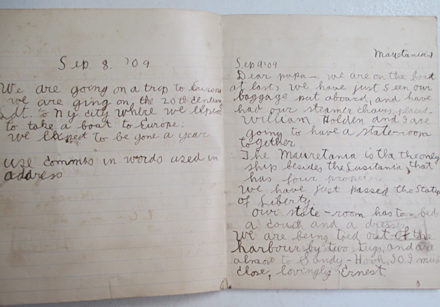 Sep. 8. '09
We are going on a trip to Europe
we are ging on the 20th century
to Ny city where we
to take a boat to Europe.
we exspect to be gone a year
use commas in words used in
address
Mauretania
Sep 9 '09
Dear papa — we are on the boat
at last, we have just seen our
baggage put aboard, and have
had our steamer chairs placed.
William Holden and I are
going to have a state-room
to gether.
The Mauretania is the only
ship besides the Lusitania that
has four
we have just passed the Statue
of Liberty.
Our state-room has to beds
a couch and a
We are being towed out of the
harbour by two tugs, and are
about to Sandy-Hook, SO I must
close, lovingly Ernest